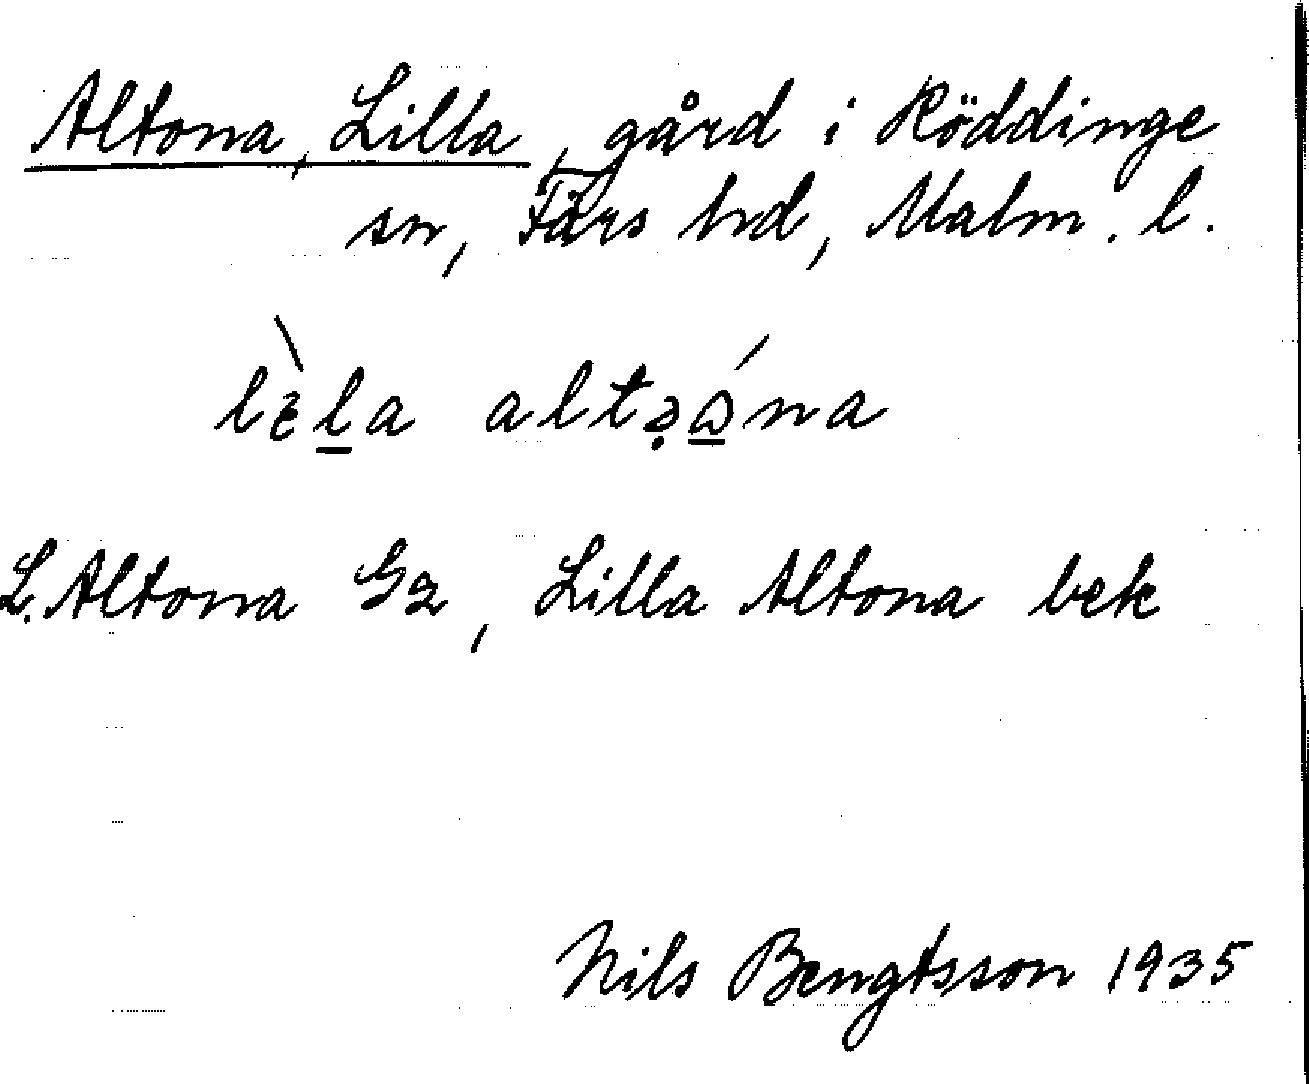 Altona, Lilla, gård i Röddinge
sn, Färs hd, Malm. l.
lɛ̀l̲a altə̣ó̲na
L. Altona G2, Lilla Altona bek
Nils Bengtsson 1935